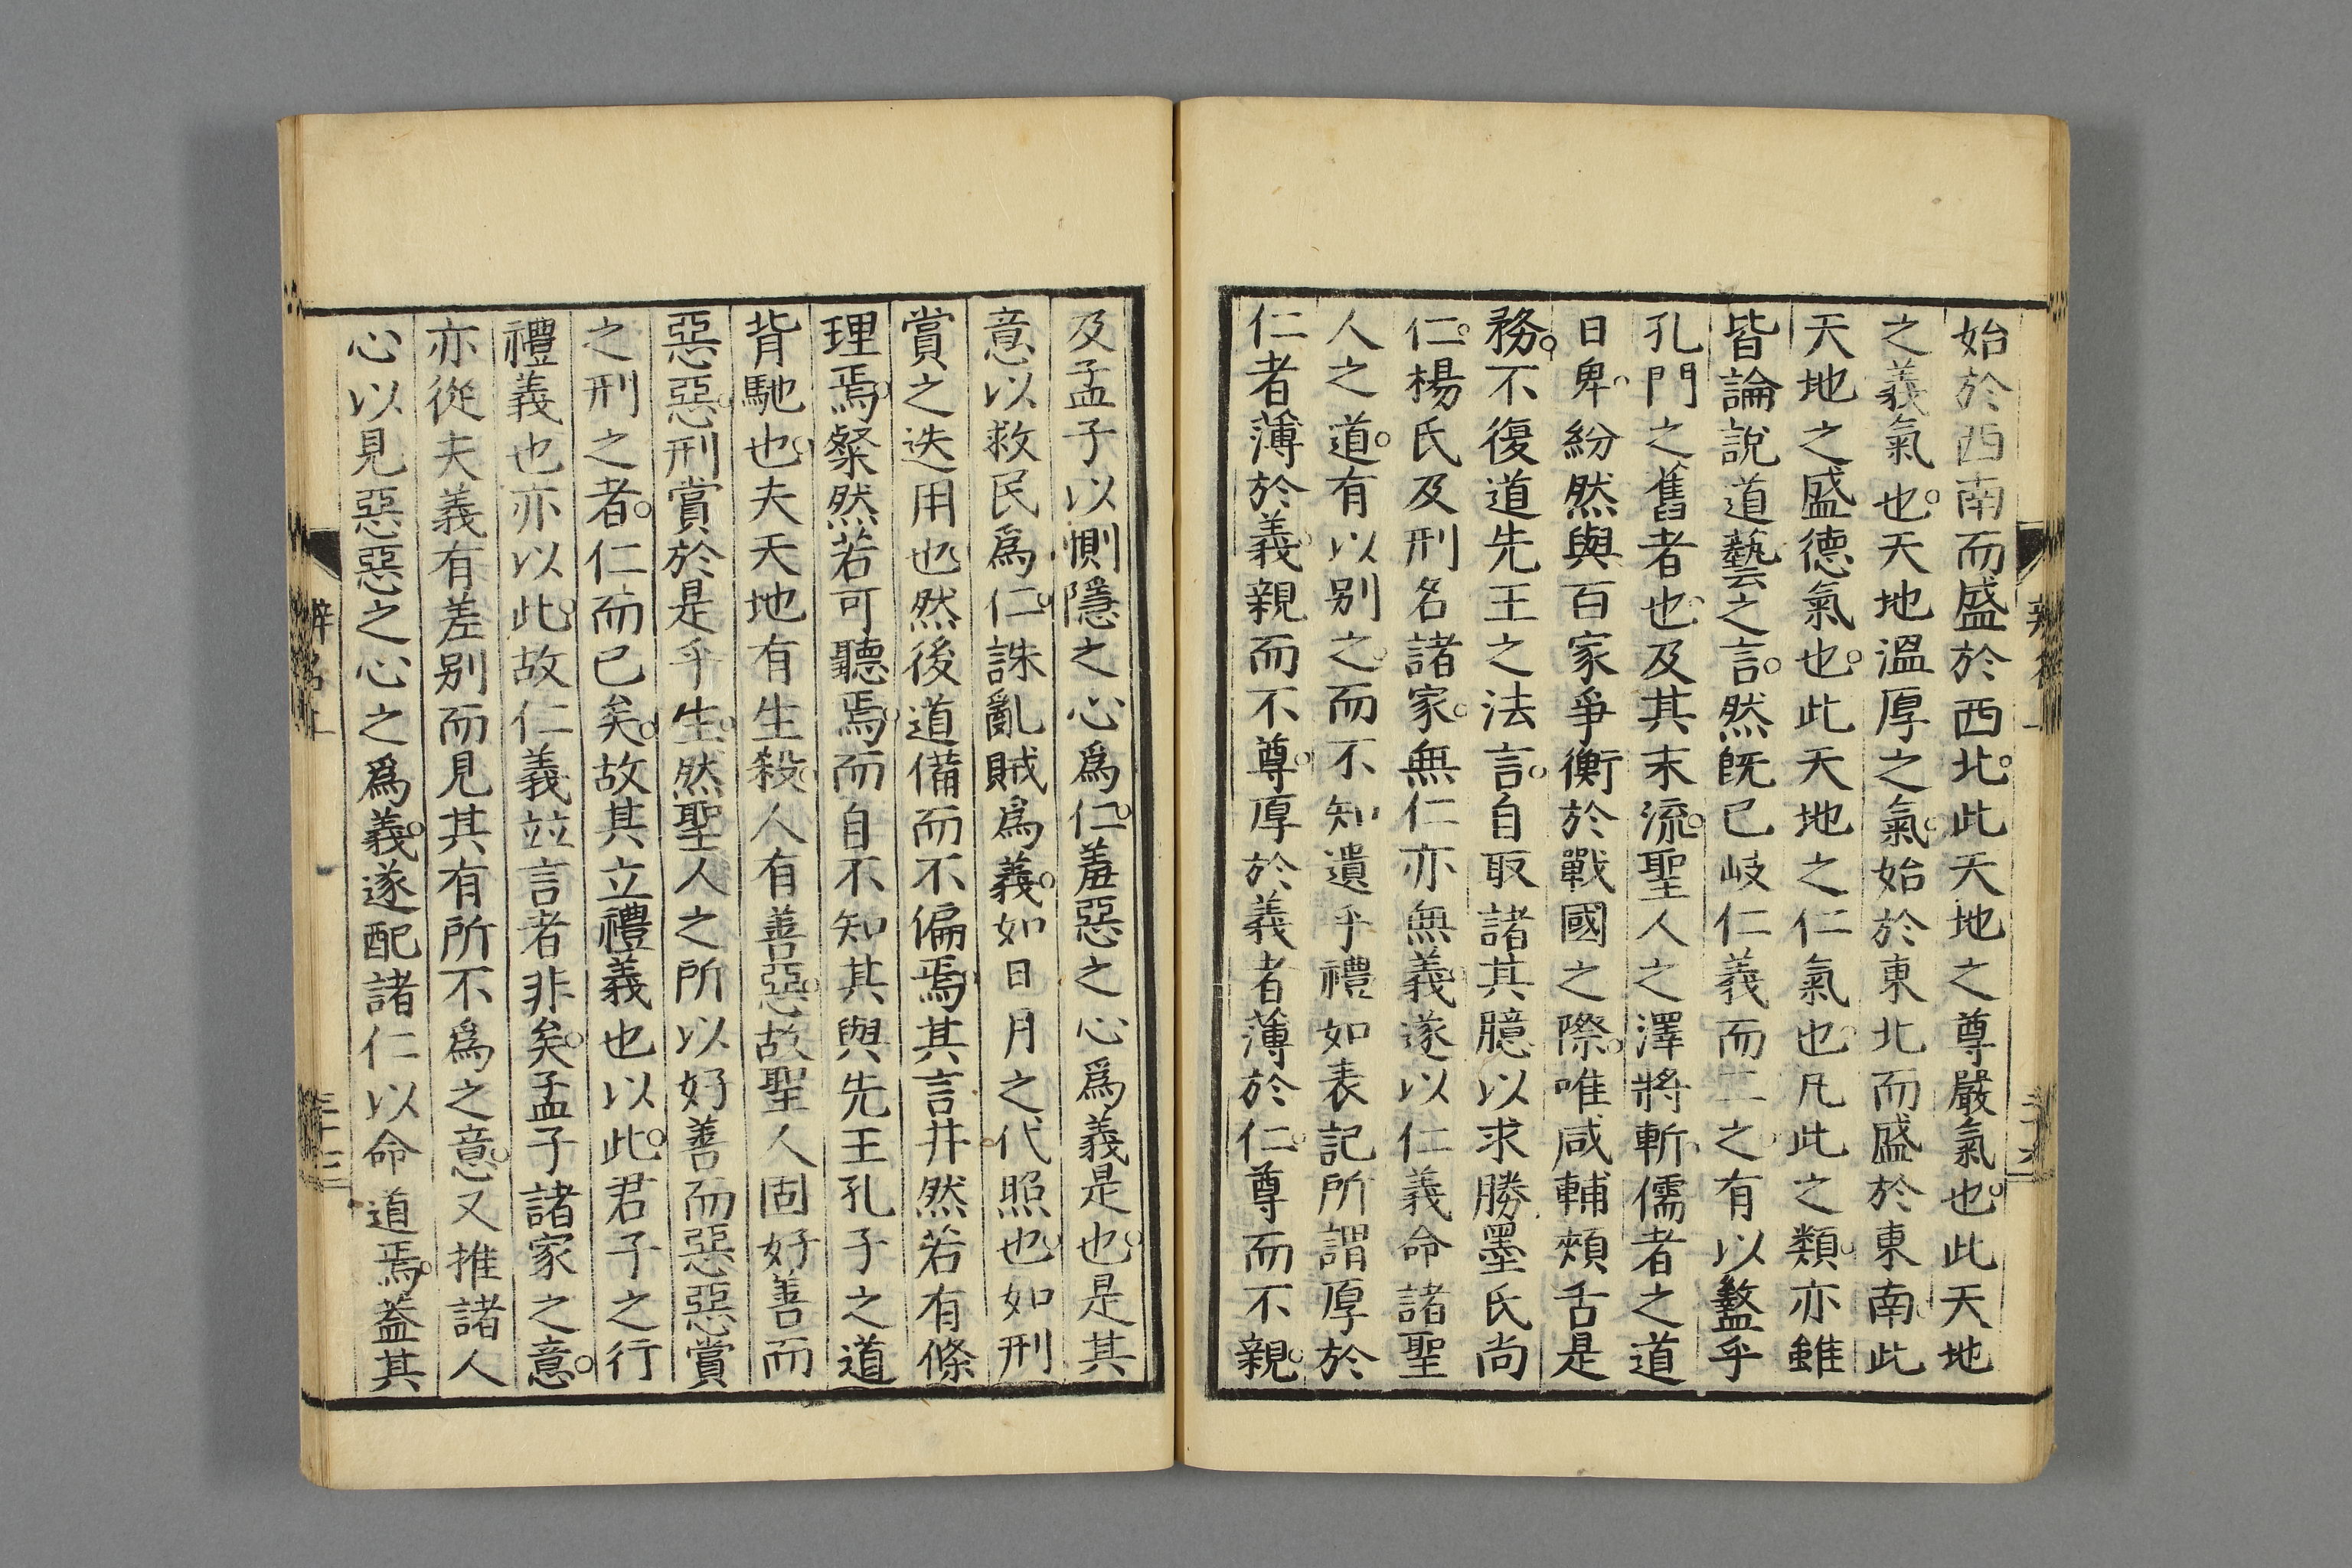 始於西南而盛於西北。此天地之尊嚴氣也。此天地
之義氣也。天地溫厚之氣。始於東北而盛於東南。此
天地之盛德氣也。此天地之仁氣也。凡此之類。亦雖
皆論說道藝之言。然既已岐仁義而二之。有以盭乎
孔門之舊者也。及其末流。聖人之澤將斬。儒者之道
日卑。紛然與百家爭衡於戰國之際。唯咸輔頰舌是
務。不復道先王之法言。自取諸其臆以求勝。墨氏尚
仁。楊氏及刑名諸家。無仁亦無義。遂以仁義命諸聖
人之道。有以別之。而不知遺乎禮。如表記所謂厚於
仁者薄於義。親而不尊。厚於義者薄於仁。尊而不親。
及孟子以惻隱之心爲仁。羞惡之心爲義是也。是其
意以救民爲仁。誅亂賊爲義。如日月之代照也。如刑
賞之迭用也。然後道備而不偏焉。其言井然若有條
理焉。粲然若可聽焉。而自不知其與先王孔子之道
背馳也。夫天地有生殺。人有善惡。故聖人固好善而
惡惡。刑賞於是乎生。然聖人之所以好善而惡惡賞
之刑之者。仁而已矣。故其立禮義也以此。君子之行
禮義也亦以此。故仁義竝言者非矣。孟子諸家之意。
亦從夫義有差別而見其有所不爲之意。又推諸人
心以見惡惡之心之爲義。遂配諸仁以命道焉。蓋其
辨名上
三十三